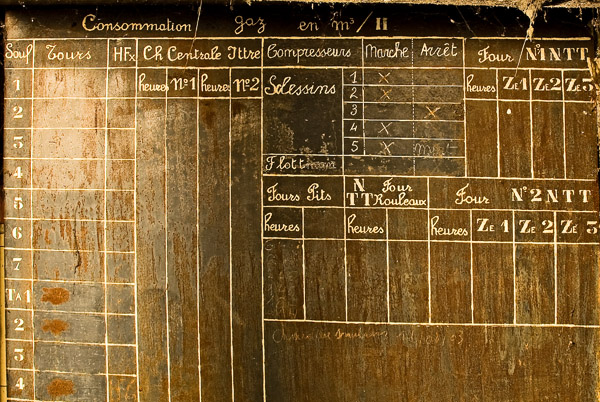 Consommation gaz en m³/H
Souf Tours HFx Ch Centrale Ittre Compresseurs Marche Arrêt Four N°1 NTT
1 heures N°1 heures N°2 Sclessins 1 X heures Ze1 Ze2 Ze3
2 2 X
3 3 X
4 4 X
5 X
Flott
5 Fours Pits N TT Four Rouleaux Four N°2 NTT
6 heures heures heures Ze1 Ze2 Ze3
7
TA1
2
3
4